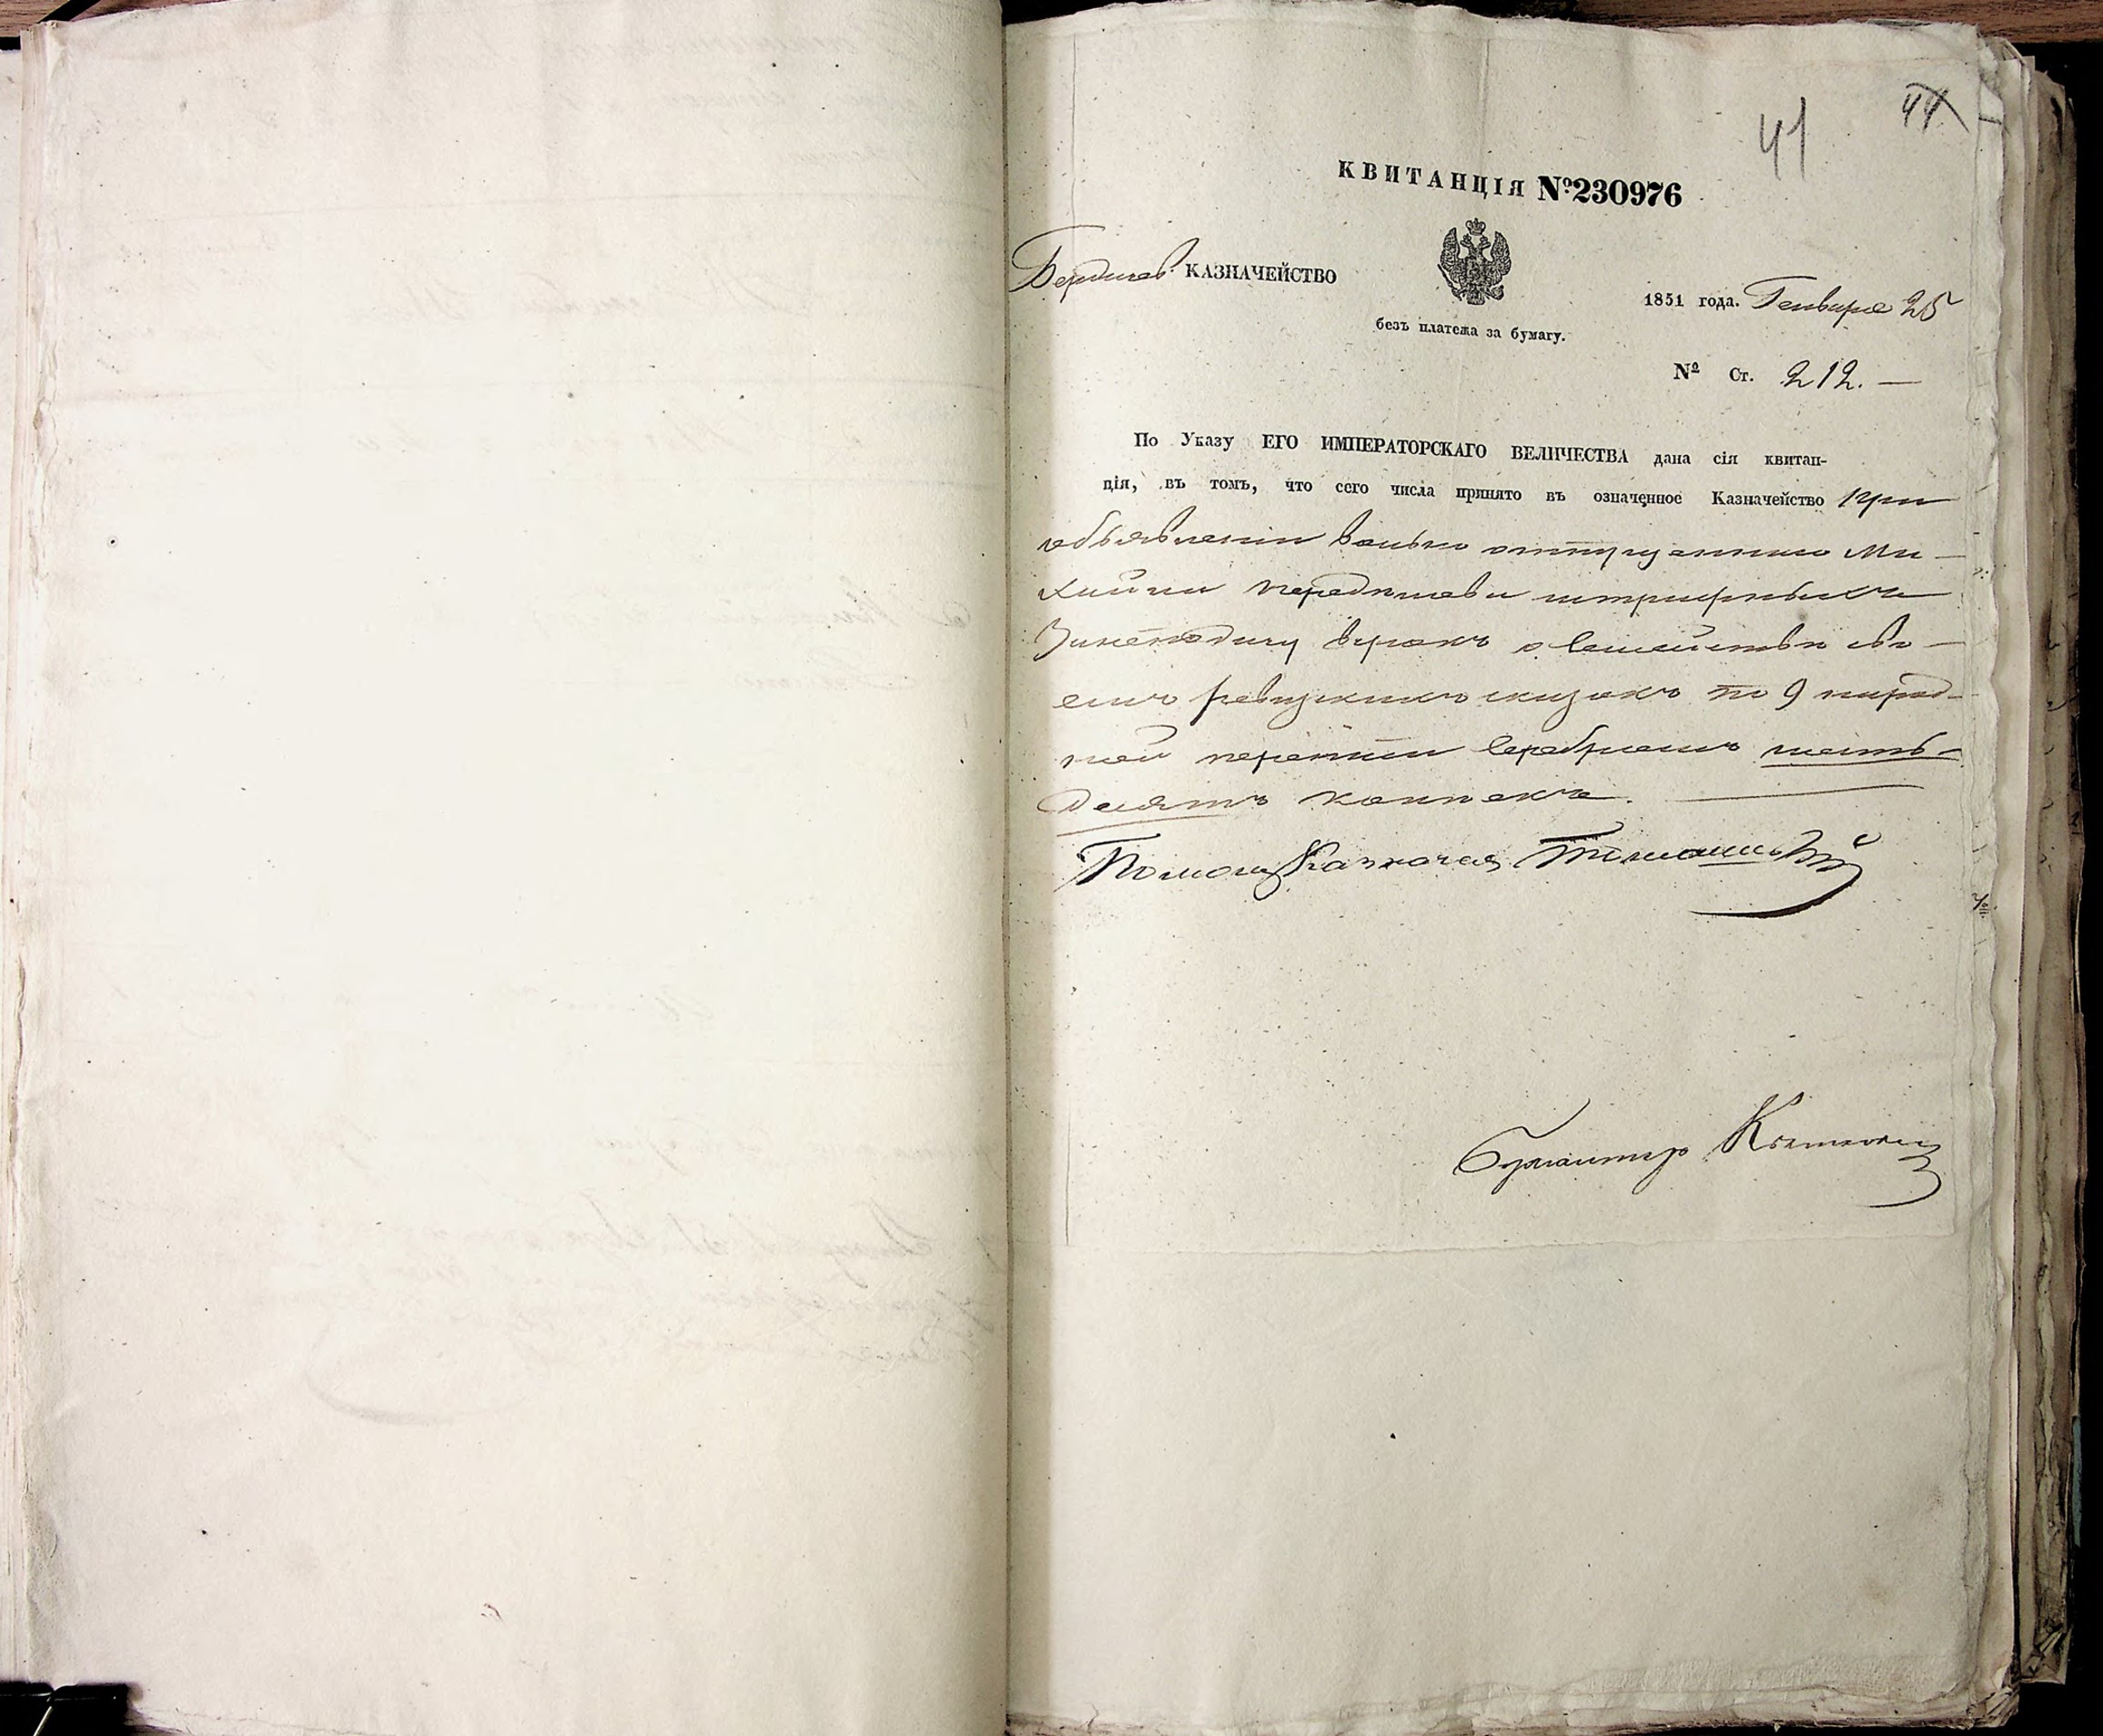 41 44
КВИТАНЦІЯ №230976
Бердичев. КАЗНАЧЕЙСТВО
1851 года. Генваря 25
безъ платежа за бумагу.
№ Ст. 212. —
По Указу ЕГО ИМПЕРАТОРСКАГО ВЕЛИЧЕСТВА дана сія квитан-
ція, въ томъ, что сего числа принято въ означенное Казначейство при
объявленіи вольно отпущенно Ми-
штрафныхъ
о Семействѣ сво-
емъ ревизкихъ сказокъ по 9 народ-
ной переписи Серебромъ шесть-
десятъ копѣекъ. —
Помощ Казначея
Бухгалтеръ